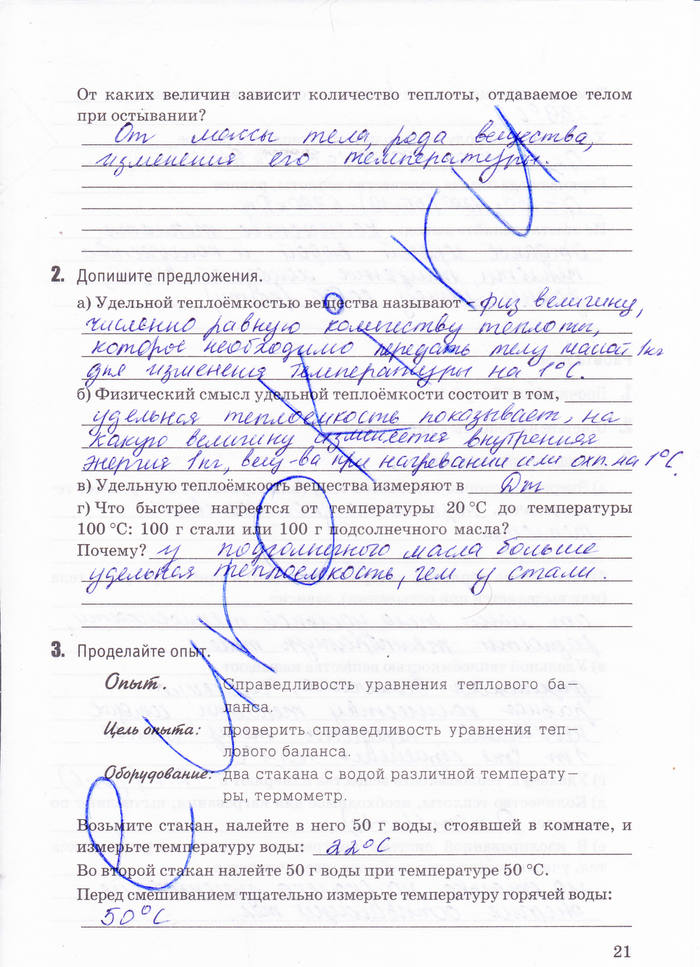 От каких величин зависит количество теплоты, отдаваемое телом
при остывании?
От массы тела, рода вещества,
изменения его температуры.
2. Допишите предложения.
а) Удельной теплоёмкостью вещества называют – физ. величину,
численно равную количеству теплоты,
которое необходимо передать телу массой 1кг
для изменения температуры на 1°С.
б) Физический смысл удельной теплоёмкости состоит в том,
удельная теплоемкость показывает, на
какую величину изменяется внутренняя
энергия 1кг, вещ-ва при нагревании или охл. на 1°С.
в) Удельную теплоёмкость вещества измеряют в Дж
г) Что быстрее нагреется от температуры 20 °С до температуры
100 °С: 100 г стали или 100 г подсолнечного масла?
Почему? у подсолнечного масла больше
удельная теплоемкость, чем у стали.
3. Проделайте опыт.
Опыт. Справедливость уравнения теплового ба–
ланса.
Цель опыта: проверить справедливость уравнения теп–
лового баланса.
Оборудование: два стакана с водой различной температу–
ры, термометр.
Возьмите стакан, налейте в него 50 г воды, стоявшей в комнате, и
измерьте температуру воды: 22°С
Во второй стакан налейте 50 г воды при температуре 50 °С.
Перед смешиванием тщательно измерьте температуру горячей воды:
50°С
21